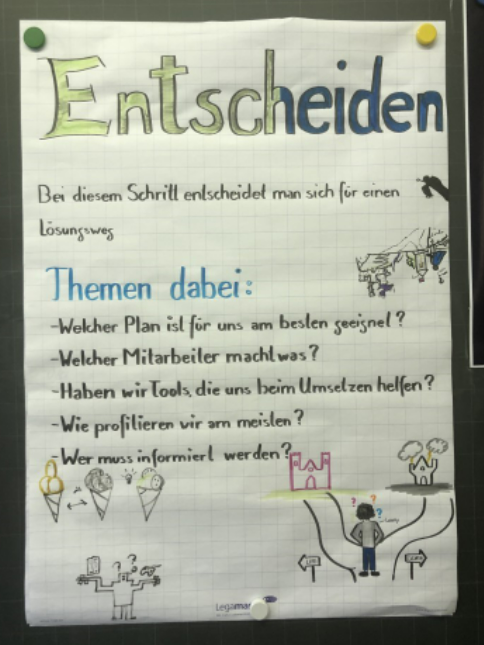 Entscheiden
Bei diesem Schritt entscheidet man sich für einen
Lösungsweg
Themen dabei:
-Welcher Plan ist für uns am besten geeignet?
-Welcher Mitarbeiter macht was?
-Haben wir Tools, die uns beim Umsetzen helfen?
-Wie profilieren wir am meisten?
-Wer muss informiert werden?
? ? ?
? ?
Legamaster